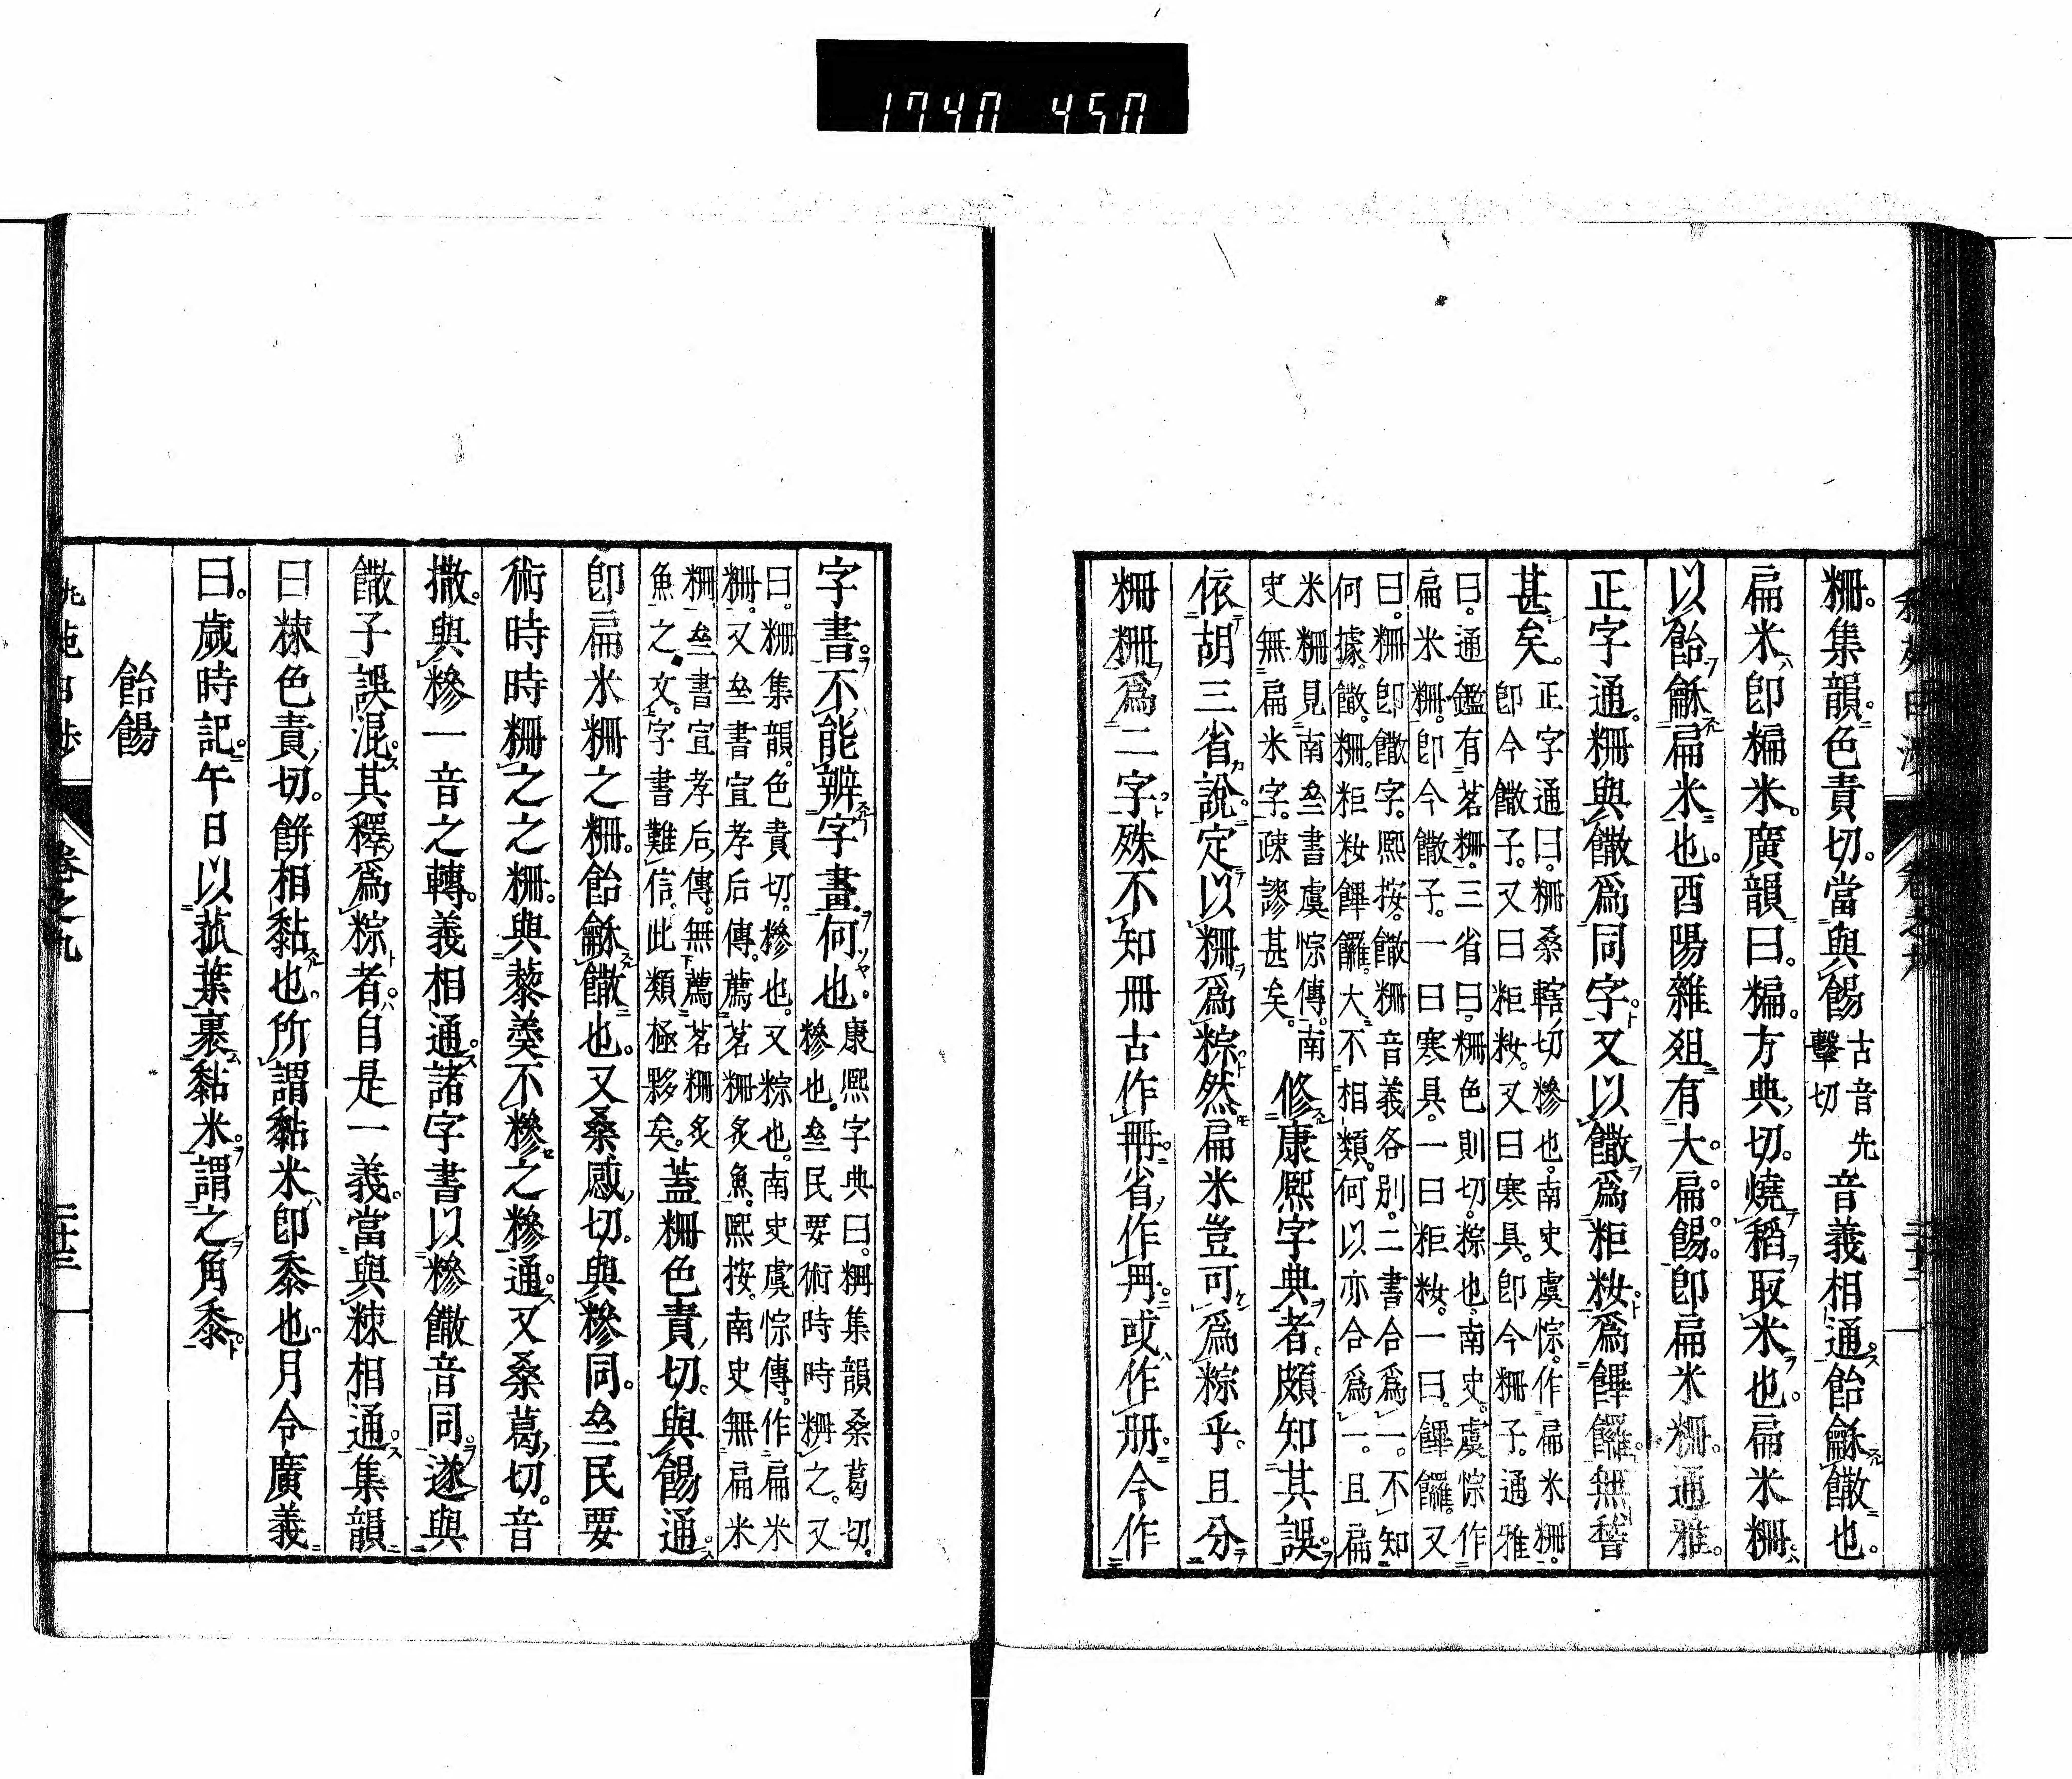 1740 450
粣。集韻。色責切。當與餳古音先擊切音義相通飴龢饊也。
扁米卽糄米。廣韻曰。糄。方典切。燒稻取米也。扁米粣
以飴龢扁米也。酉陽雜俎有大扁餳。卽扁米粣。通雅。
正字通。粣與饊爲同字。又以饊爲粔籹。爲饆饠。無稽
甚矣。正字通曰。粣桑轄切糝也。南史虞悰。作扁米粣。
卽今饊子。又曰粔籹。又曰寒具。卽今粣子。通雅
曰。通鑑有茗粣。三省曰。粣色則切。粽也。南史。虞悰作
扁米粣。卽今饊子。一曰寒具。一曰粔籹。一曰。饆饠。又
曰。粣卽饊字。熙按。饊粣音義各別。二書合爲一。不知
何據。饊。粣。粔籹饆饠。大不相類。何以亦合爲一。且扁
米粣見南史書虞悰傳。南
史無扁米字。疎謬甚矣。修康熙字典者。頗知其誤。
依胡三省說。定以粣爲粽。然扁米豈可爲粽乎。且分
粣粣爲二字。殊不知冊古作𠕋。省作冊。或作册。今作
字書。不能辨字畫。何也。康熙字典曰。粣集韻桑葛切。
糝也。㕘民要術時時粣之。又
曰。粣集韻。色責切。糝也。又粽也。南史虞悰傳。作扁米
粣。又㕘書宣孝后傳。薦茗粣炙魚。熙按。南史無扁米
粣㕘書宣孝后傳。無薦茗粣炙
魚之文。字書難信。此類極夥矣。蓋粣色責切。與餳通
卽扁米粣之粣。飴龢饊也。又桑感切。與糝同。㕘民要
術時時粣之之粣。與藜羹不糝之糝通。又桑葛切。音
撒。與糝一音之轉。義相通。諸字書以糝饊音同。遂與
饊子誤混。其釋爲粽者。自是一義。當與𥻨相通。集韻
曰𥻨色責切。餅相黏也。所謂黏米卽黍也。月令廣義
曰。歲時記。午日以菰葉裹黏米。謂之角黍。
飴餳
卷之九